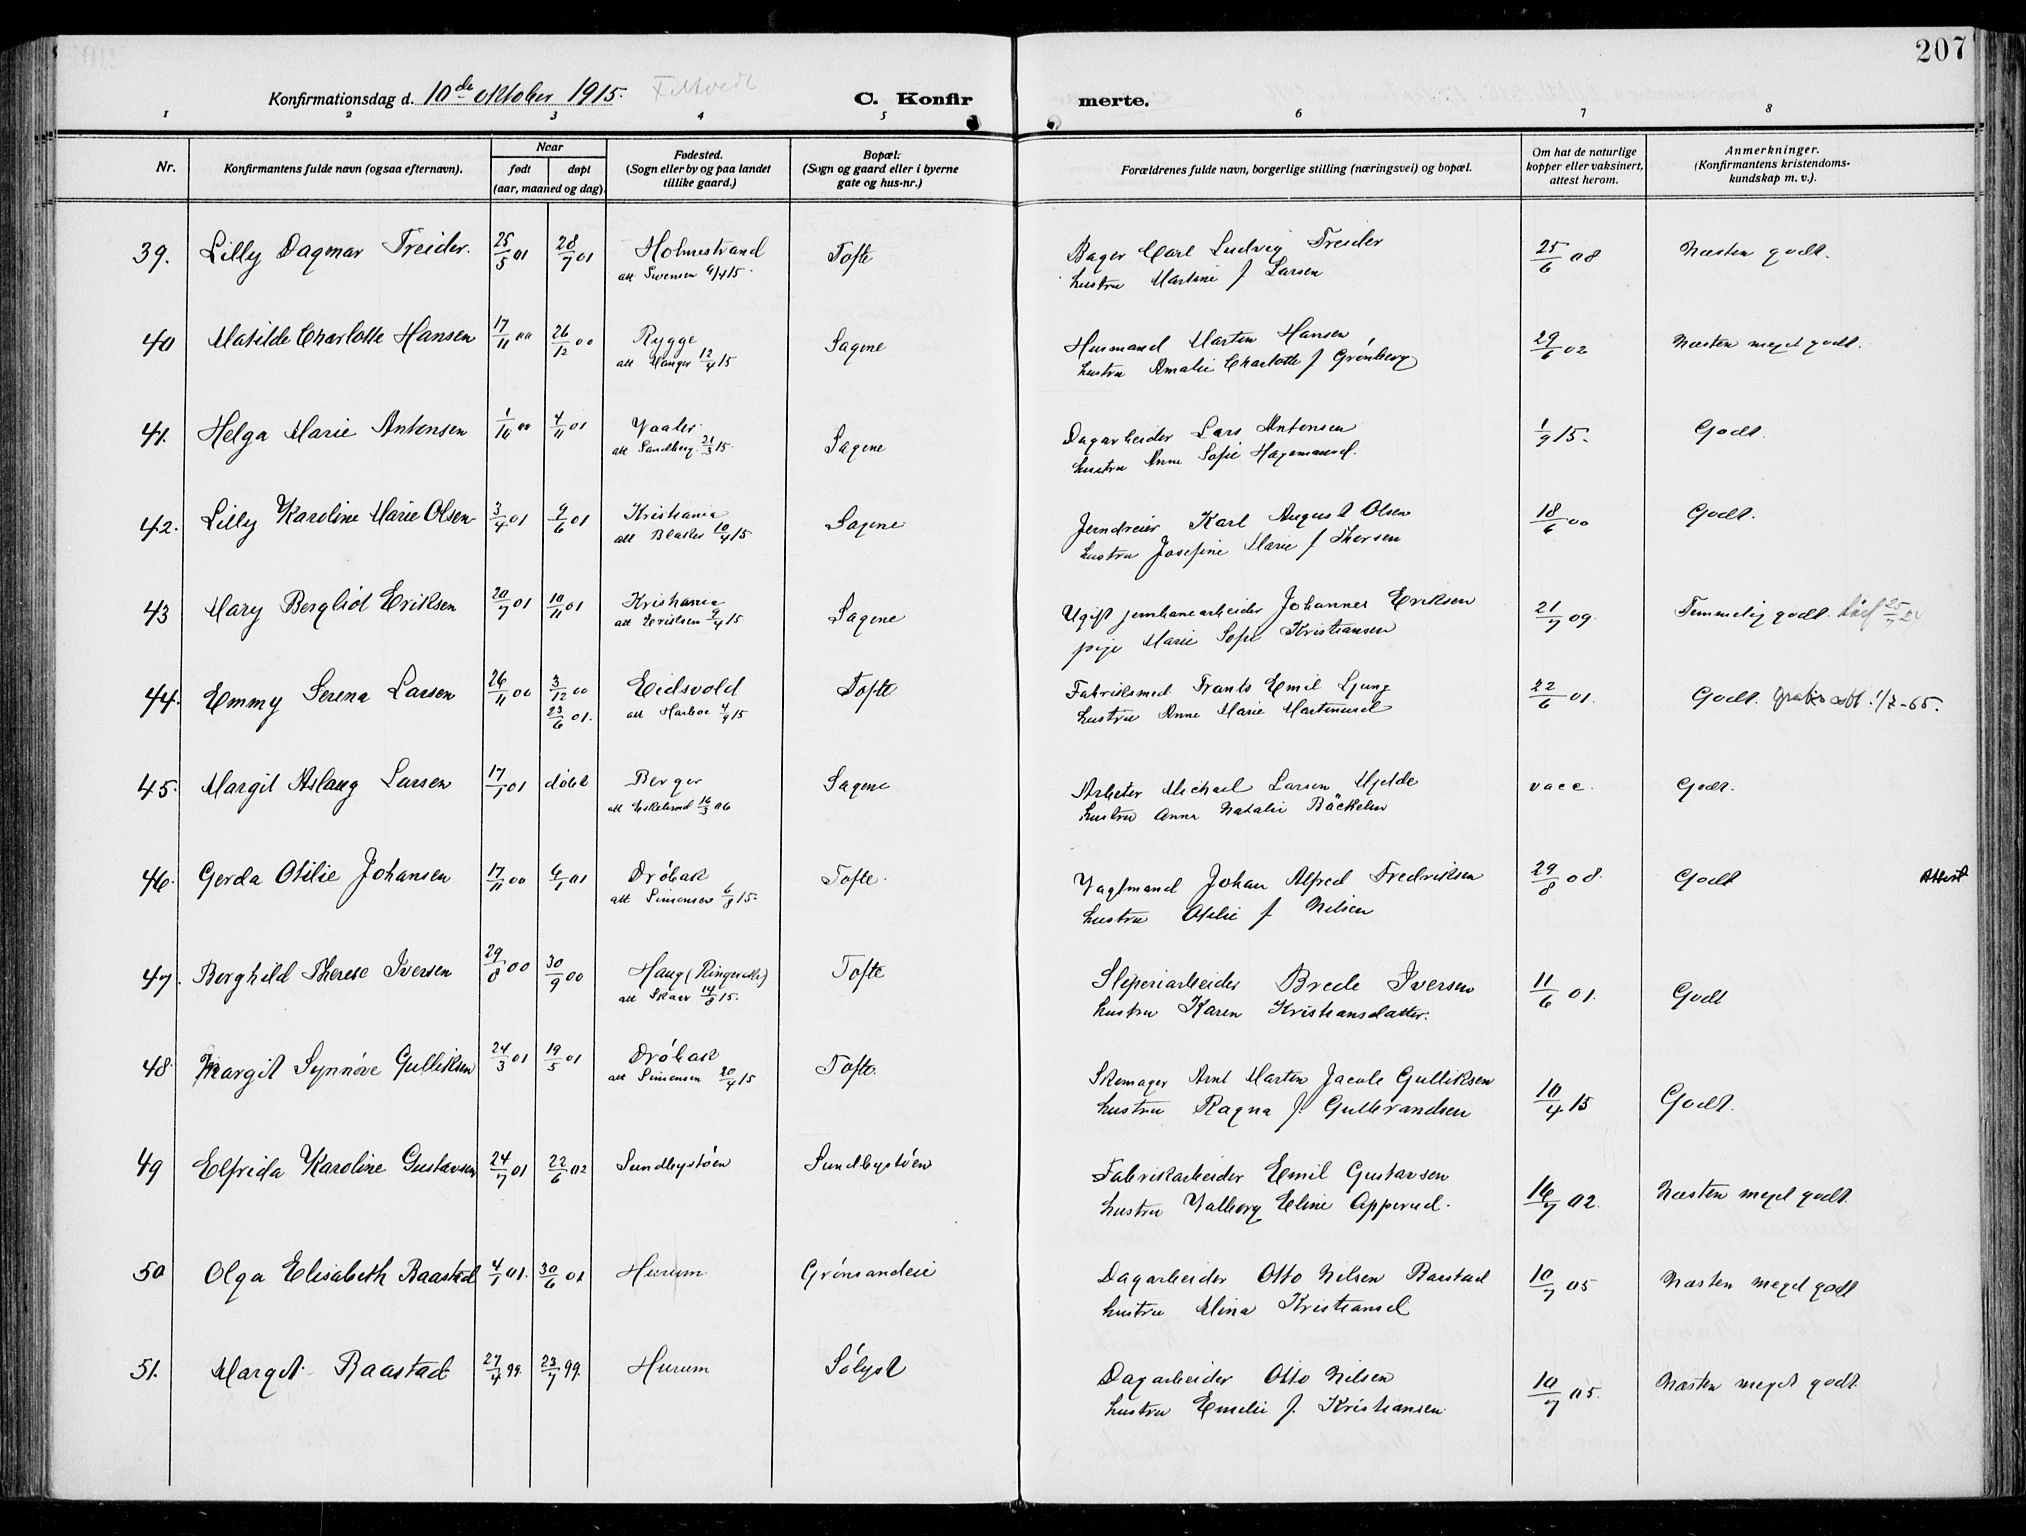 207
Konfirmationsdag d. 10de oktober 1915. Filtvedt
C. Konfirmerte.
1 2 3 4 5 6 7 8
Nr.
Konfirmantens fulde navn (ogsaa efternavn).
Naar
født døpt
(aar, maaned og dag).
Fødested.
(Sogn eller by og paa landet
tillike gaard.)
Bopæl.
(Sogn og gaard eller i byerne
gate og hus-nr.)
Forældrenes fulde navn, borgerlige stilling (næringsvei) og bopæl.
Om hat de naturlige
kopper eller vaksinert,
attest herom.
Anmerkninger.
(Konfirmantens kristendoms-
kundskap m. v.).
39. Lilly Dagmar Treider. 25/5 01 28/7 01 Holmestrand Tofte Bager Carl Ludvig Treider 25/6 08 Næsten godt.
att Svensen 9/4 15. hustru Martine f Larsen
40 Matilde Charlotte Hansen 17/11 00 26/12 00 Rygge Sagene Husmand Marten Hansen 29/6 02 Næsten meget godt.
att Manger 12/4 15 hustru Amalie Charlotte f Grønberg
41. Helga Marie Antonsen 1/10 00 4/11 01 Vaaler Sagene Dagarbeider Lars Antonsen 1/9 15. Godt.
att Sandberg 21/3 15. hustru Anne Sofie Hagemand.
42. Lilly Karoline Marie Olsen 3/4 01 9/6 01 Kristiania Sagene Jerndreier Karl August Olsen 18/6 00 Godt.
att 10/4 15 hustru Josefine Marie f Thorsen
43 Mary Bergliot Eriksen 20/7 01 10/11 01 Kristiania Sagene Ugift jernbanearbeider Johannes Eriksen 21/7 09. Temmelig godt. død
att Eriksen 9/4 15 pige Marie Sofie Kristiansen
44. Emmy Serena Larsen 26/11 00 3/12 00 Eidsvold Tofte Fabriksmed Frants Emil Ljung 22/6 01. Godt. gratis att. 1/7-65.
23/6 01. att Harboe 4/9 15 hustru Anne Marie Martinusd
45. Margit Aslaug Larsen 17/1 01 døbt Berger Sagene Arbeter Michael Larsen Mjelde vacc. Godt.
att Eskelund 16/3 06 hustru Anna Natalie Bäckelin
46. Gerda Otilie Johansen 17/11 00 6/1 01 Drøbak Tofte. Vagtmand Johan Alfred Fredriksen 29/8 08. Godt Attest
att Simonsen 6/8 15. hustru Otilie f Nilsen
47. Borghild Therese Iversen 29/8 00 30/9 00 Haug (Ringerike) Tofte Sliperiarbeider Brede Iversen 11/6 01. Godt
att Skaar 14/8 15. hustru Karen Kristiansdatter.
48. Margit Synnøve Gulliksen 24/3 01 19/5 01 Drøbak Tofte. Skomager Arnt Marten Jacob Gulliksen 10/4 15 Godt.
att Simonsen 20/4 15 hustru Ragna f. Gulbrandsen
49 Elfrida Karoline Gustavsen 24/7 01 22/6 02 Sundbystøen Sundbystøen Fabrikarbeider Emil Gustavsen 16/7 02. Næsten meget godt.
hustru Valborg Eline Opperud.
50 Olga Elisabeth Baastad 4/1 01. 30/6 01 Hurum Grønsandeie Dagarbeider Otto Nilsen Baastad 10/7 05 Næsten meget godt
hustru Mina Kristiansd
51. Margit Baastad 27/4 99. 23/7 99. Hurum Sølyst Dagarbeider Otto Nilsen 10/7 05. Næsten meget godt.
hustru Emelie f. Kristiansen